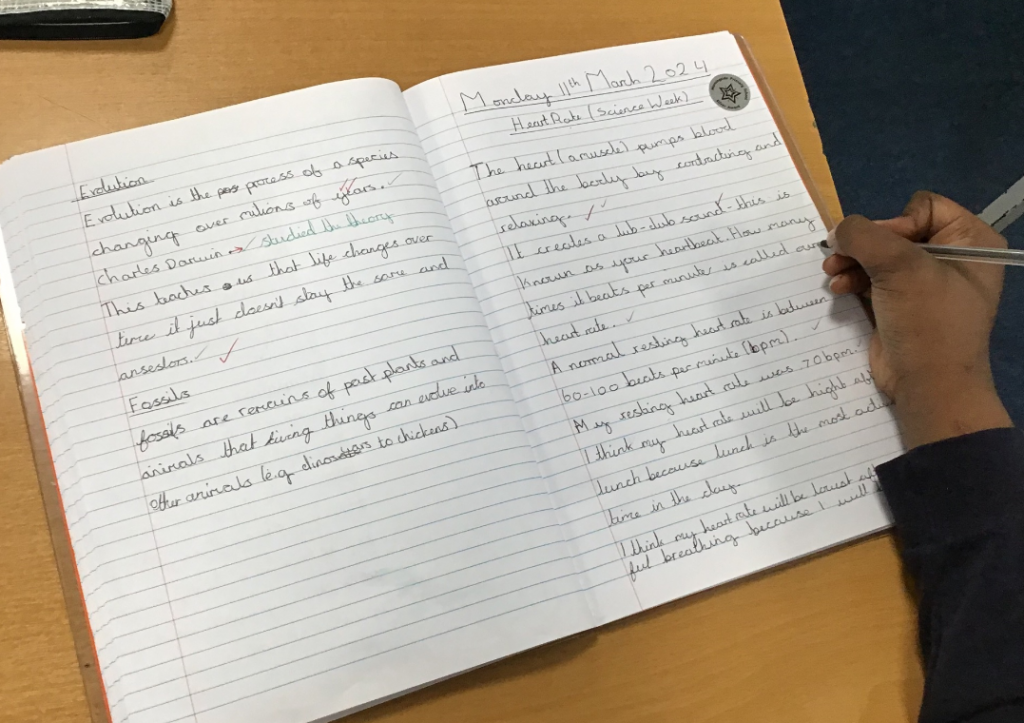 Evolution
Evolution is the process of a species
changing over milions of years.
Charles Darwin → studied the theory
This teaches us that life changes over
time it just doesn't stay the same and
ansestors.
Fossils
fossils are remains of past plants and
animals that living things can evolve into
other animals (e.g dinosars to chickens)
Monday 11th March 2024
Heart Rate (Science Week)
The heart (a muscle) pumps blood
around the body by contracting and
relaxing.
It creates a lub-dub sound - this is
known as your heartbeat. How many
times it beats per minute is called our
heart rate.
A normal resting heart rate is between
60-100 beats per minute (bpm).
My resting heart rate was 70bpm.
I think my heart rate will be hight
lunch because lunch is the most
time in the day.
I think my heart rate will be lowest
breathing because I will